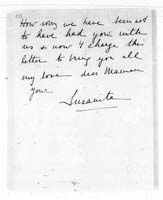 How sorry we have been not
to have had you with
us & now I charge this
letter to bring you all
my love dear Maman
your
Susanita